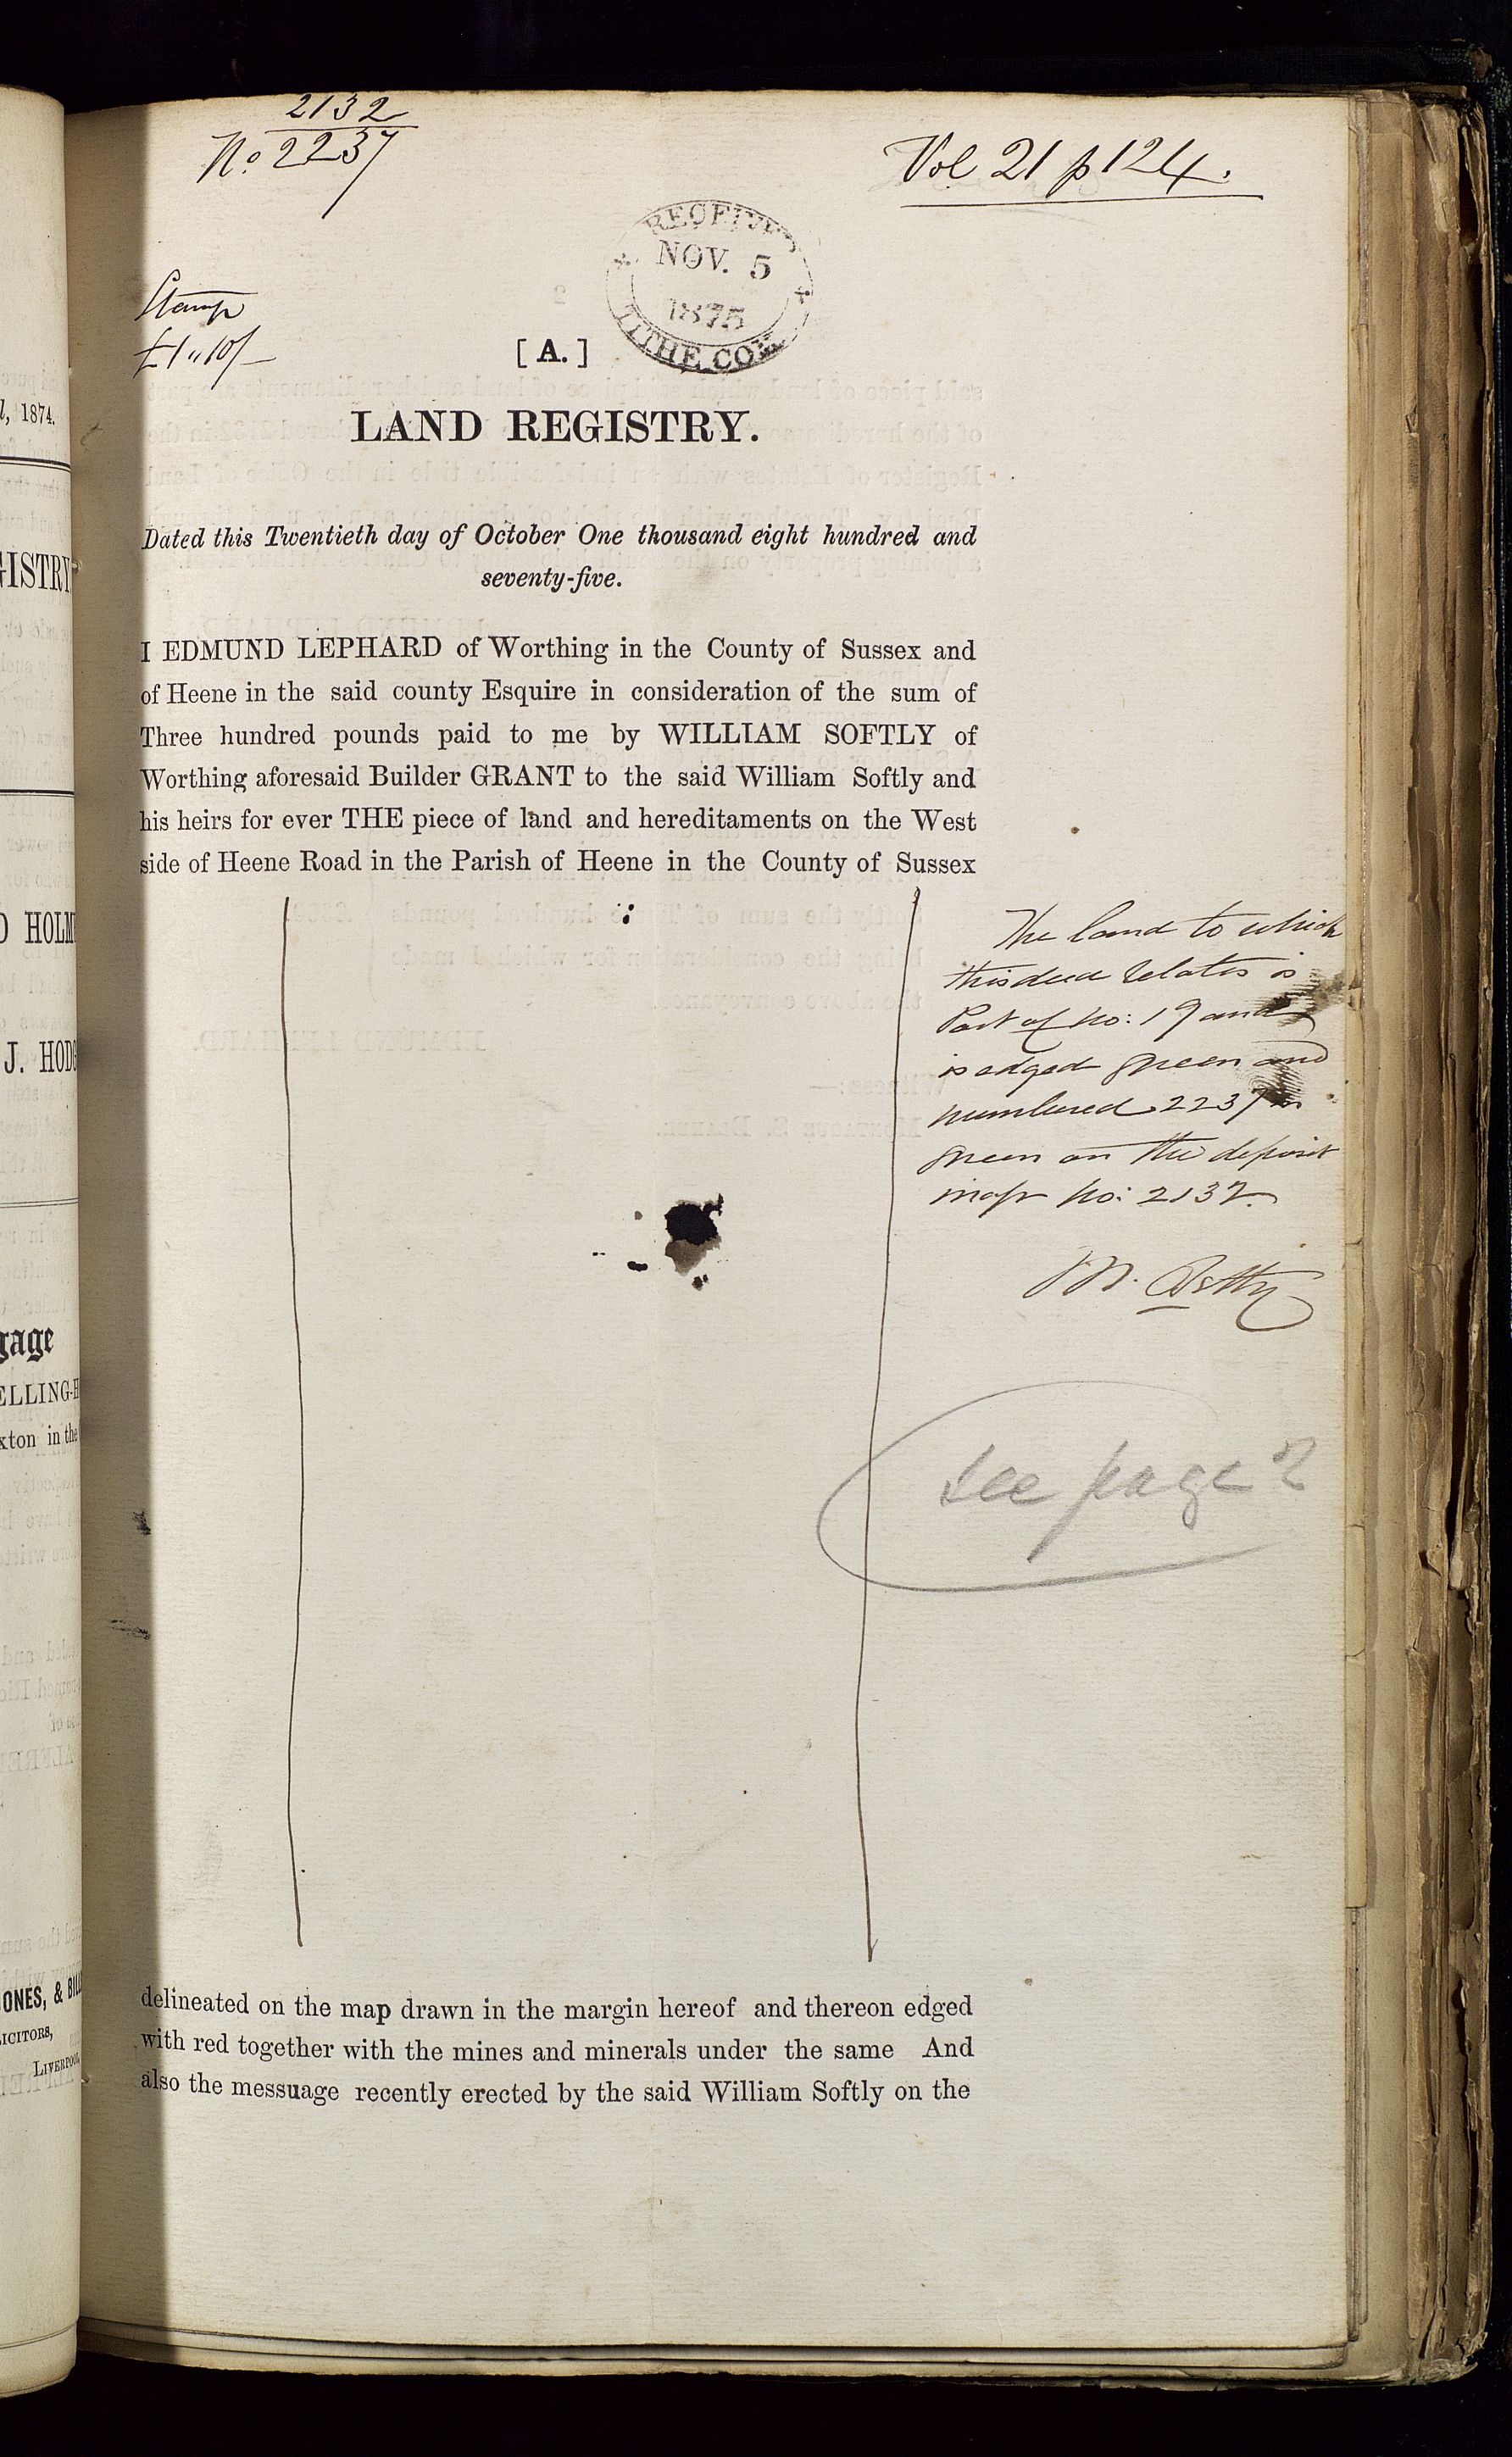 2132
No. 2237
Vol 21 p 124.
RECEIVED
NOV. 5
1875
TITHE COM
Stamp
£1 " 10/-
[ A. ]
LAND REGISTRY.
Dated this Twentieth day of October One thousand eight hundred and
seventy-five.
I EDMUND LEPHARD of Worthing in the County of Sussex and
of Heene in the said county Esquire in consideration of the sum of
Three hundred pounds paid to me by WILLIAM SOFTLY of
Worthing aforesaid Builder GRANT to the said William Softly and
his heirs for ever THE piece of land and hereditaments on the West
side of Heene Road in the Parish of Heene in the County of Sussex
The land to which
this deed relates is
Part of No: 19 and
is edged green and
numbered 2237 in
green on the deposit
map No: 2132.
see page 2
delineated on the map drawn in the margin hereof and thereon edged
with red together with the mines and minerals under the same And
also the messuage recently erected by the said William Softly on the
l, 1874.
GISTRY
HOLM
J. HODG
gage
ELLING-H
xton in the
JONES, & BILL
LICITORS,
LIVERPOOL